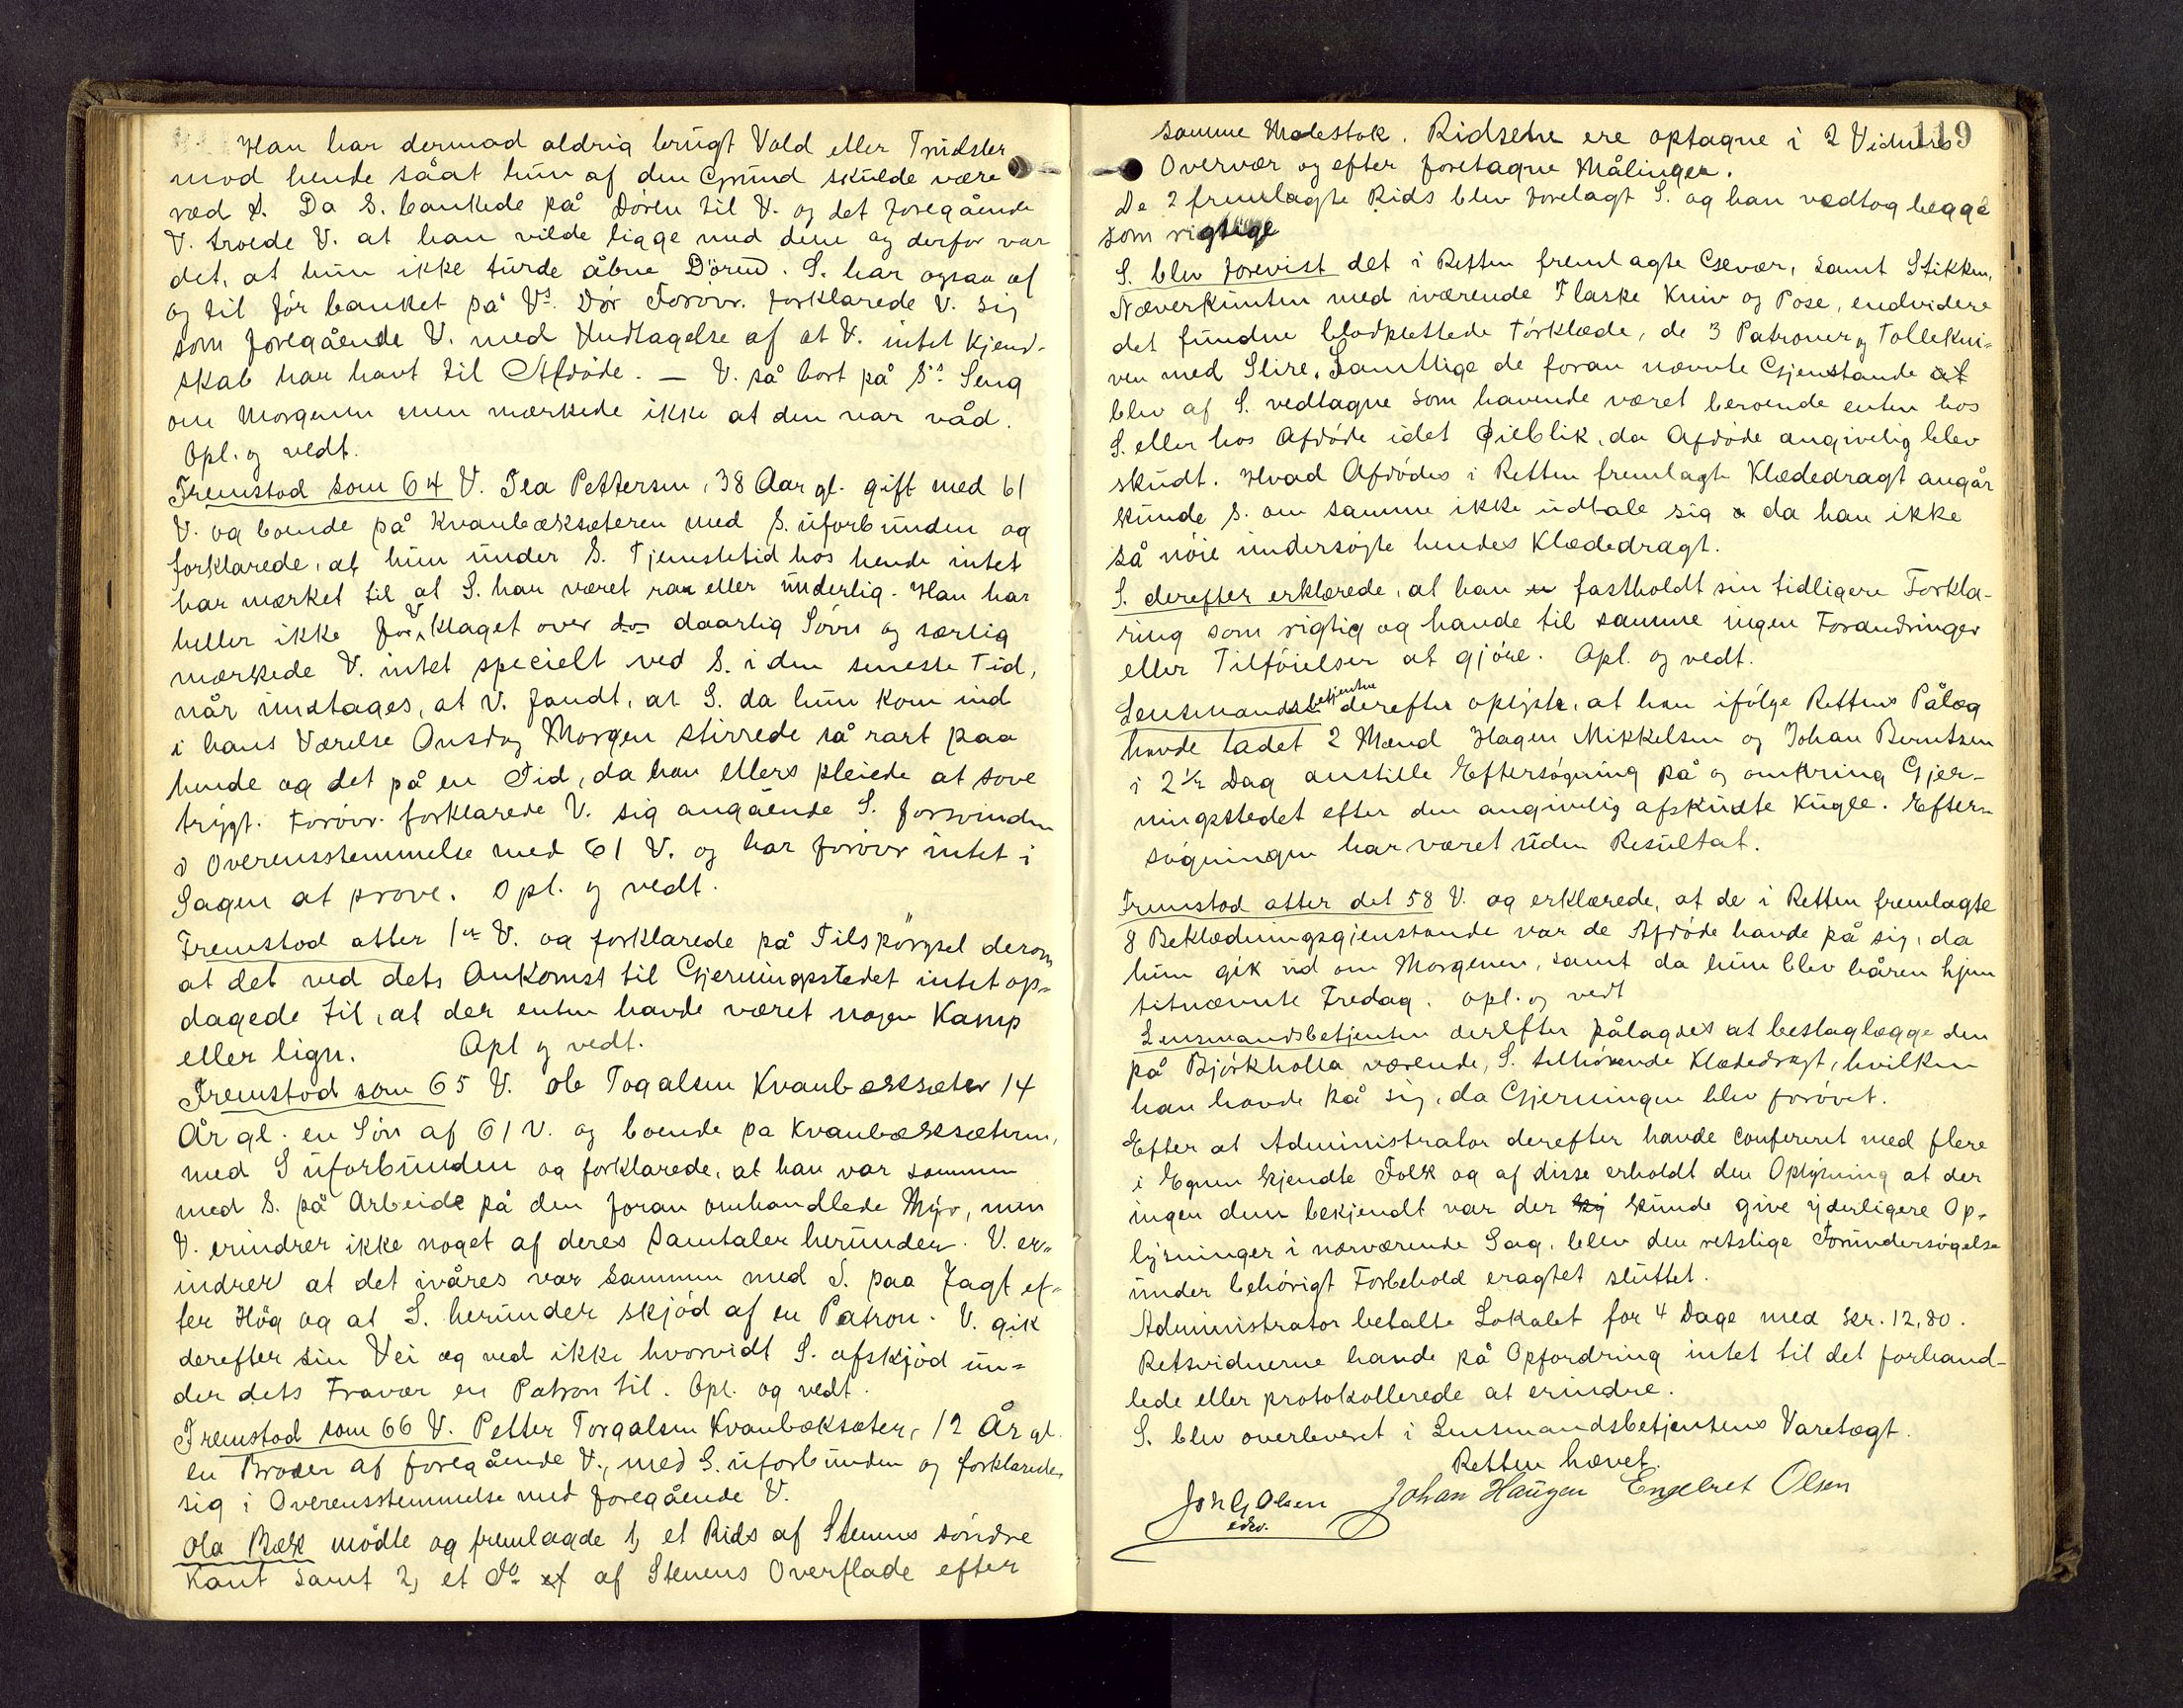 Han har dermod aldrig brugt Vold eller Trudsler
mod hende såat hun af den Grund skulde være
ræd S. Da S. bankede på Døren til V. og det foregående
V. troede V. at han vilde ligge med dem og derfor var
det, at hun ikke turde åbne Døren. S. har ogsaa af
og til før banket på Vs. Dør Forøvr. forklarede V. sig
som foregående V. med Undtagelse af at V. intet Kjend-
skab har havt til Afdøde. — V. så bort på S's Seng
om Morgenen men mærkede ikke at den var våd.
Opl. og vedt.
Fremstod som 64 V. Tea Pettersen, 38 Aar gl. gift med 61
V. og boende på Kvanbæksæteren med S. uforbunden og
forklarede, at hun under S. Tjenestetid hos hende intet
har mærket til at S. har været rar eller underlig. Han har
heller ikke for V klaget over daarlig Søvn og særlig
mærkede V. intet specielt ved S. i den seneste Tid,
når undtages, at V. fandt, at S. da hun kom ind
i hans Værelse Onsdag Morgen stirrede så rart paa
hende og det på en Tid, da han ellers pleiede at sove
trygt. Forøvr. forklarede V. sig angående S. Forsvinden
i Overensstemmelse med 61 V. og har forøvr intet i
Sagen at prove. Opl. og vedt.
Fremstod atter 1ste V. og forklarede på Tilspørgsel derom
at det ved dets Ankomst til Gjerningsstedet intet op-
dagede til, at der enten havde været nogen Kamp
eller lign. Opl og vedt.
Fremstod som 65 V. Ole Togalsen Kvanbæksæter 14
År gl. en Søn af 61 V. og boende pa Kvanbæksæteren,
med S uforbunden og forklarede, at han var sammen
med S. på Arbeide på den foran omhandlede Myr, men
V. erindrer ikke noget af deres Samtaler herunder. V. er-
indrer at det ivåres var sammen med S. paa Jagt ef-
ter Høg og at S. herunder skjød af en Patron. V. gik
derefter sin Vei og ved ikke hvorvidt S. afskjød un-
der dets Fravær en Patron til. Opl. og vedt.
Fremstod som 66 V. Petter Torgalsen Kvanbæksæter, 12 År gl.
en Broder af foregående V., med S. uforbunden og forklarede
sig i Overensstemmelse med foregående V.
Ola Bæk mødte og fremlagde 1, et Rids af Stenens søndre
Kant samt 2, et Do af Stenens Overflade efter
119
samme Målestok. Ridsene ere optagne i 2 Vidners
Overvær og efter foretagne Målinger.
De 2 fremlagte Rids blev forelagt S. og han vedtog begge
som rigtige
S. blev forevist det i Retten fremlagte Gevær, samt Stikken,
Næverkunten med iværende Flaske Kniv og Pose, endvidere
det fundne blodplettede Tørklæde, de 3 Patroner og Tollekni-
ven med Slire. Samtlige de foran nævnte Gjenstande
blev af S. vedtagne som havende været beroende enten hos
S. eller hos Afdøde idet Øieblik, da Afdøde angivelig blev
skudt. Hvad Afdødes i Retten fremlagte Klædedragt angår
kunde S. om samme ikke udtale sig da han ikke
så nøie undersøgte hendes Klædedragt.
S. derefter erklærede, at han fastholdt sin tidligere Forkla-
ring som rigtig og havde til samme ingen Forandringer
eller Tilføielser at gjøre. Opl. og vedt.
Lensmandsbetjenten derefter oplyste, at han ifølge Rettens Pålæg
havde ladet 2 Mænd Hagen Mikkelsen og Johan Berntsen
i 2½ Dag anstille Eftersøgning på og omkring Gjer-
ningsstedet efter den angivelig afskudte Kugle. Efter-
søgningen har været uden Resultat.
Fremstod atter det 58 V. og erklærede, at de i Retten fremlagte
8 Beklædningsgjenstande var de Afdøde havde på sig, da
hun gik ud om Morgenen, samt da hun blev båren hjem
titnævnte Fredag. opl. og vedt
Lensmandsbetjenten derefter pålagdes at beslaglægge den
på Bjørkholla værende, S. tilhørende Klædedragt, hvilken
han havde på sig, da Gjerningen blev forøvet.
Efter at Administrator derefter havde confereret med flere
i Egnen kjendte Folk og af disse erholdt den Oplysning at der
ingen dem bekjendt var der kunde give yderligere Op-
lysninger i nærværende Sag, blev den retslige Forundersøgelse
under behørigt Forbehold eragtet sluttet.
Administrator betalte Lokalet for 4 Dage med kr. 12,80.
Retsvidnerne havde på Opfordring intet til det forhand-
lede eller protokollerede at erindre.
S. blev overleveret i Lensmandsbetjentens Varetægt.
Retten hævet.
Joh G Olsen Johan Haugen Engebret Olsen
edsv.